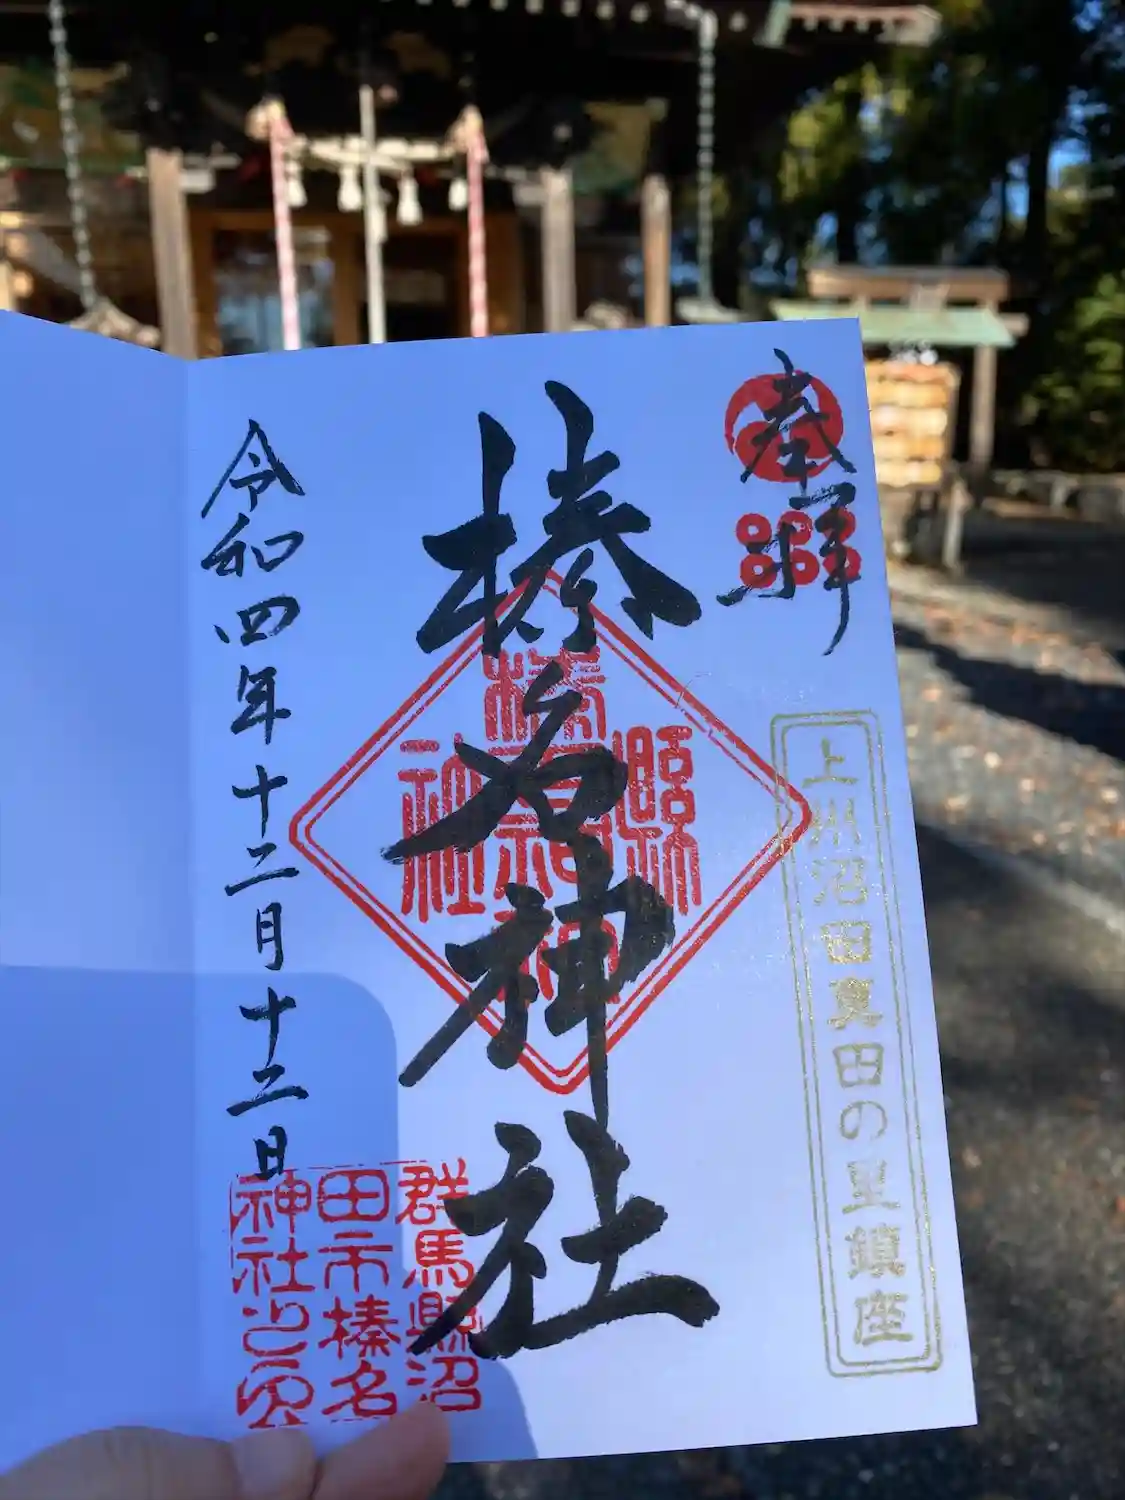 奉拝
上州沼田真田の里鎮座
榛名神社
群馬縣沼
田市榛名
神社之印
令和四年十二月十二日